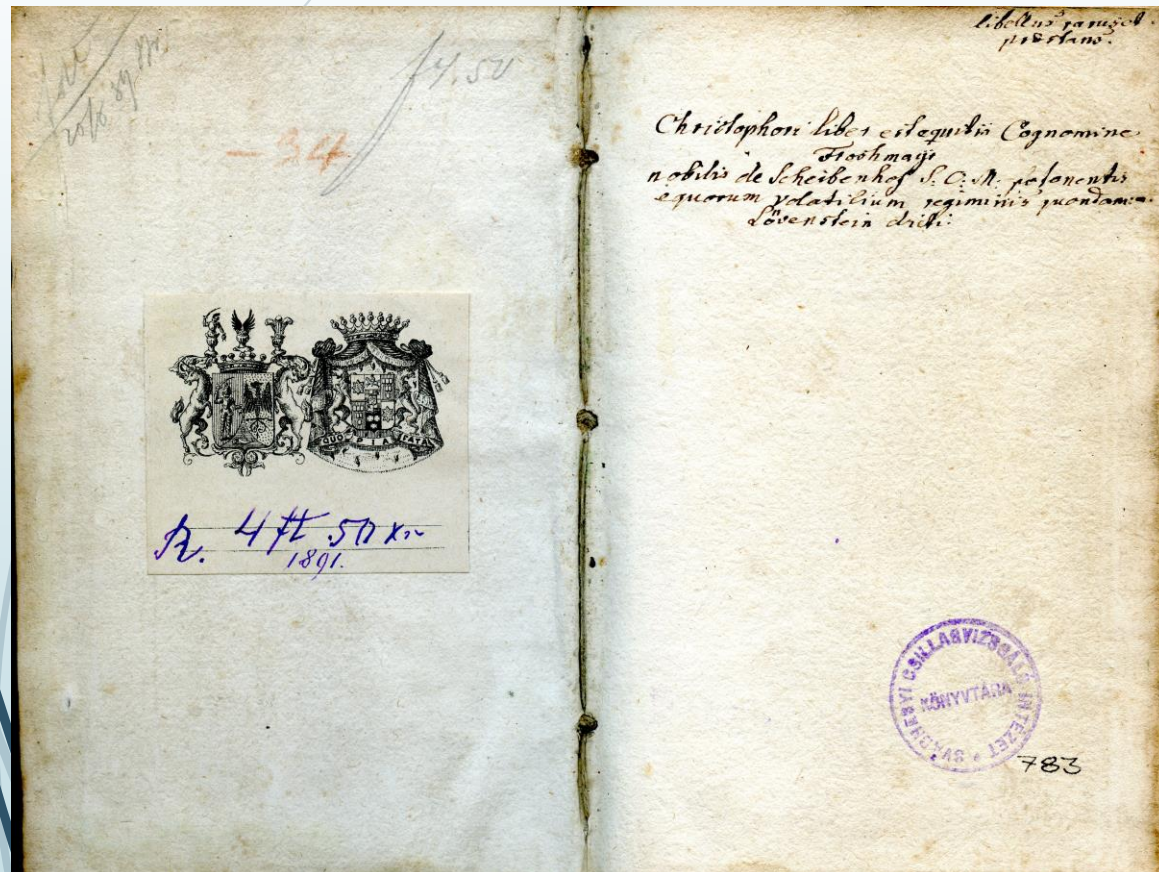 f 4.50
— 34
QUO FATA
R. 4 ft 50 Kr
1891.
libellus
Christophori liber est equitis Cognomine
Froshmayr
nobilis de Scheibenhof S. C. M.
equorum volatilium regiminis quondam
Lövenstein dicti
SVÁBHEGYI CSILLAGVIZSGÁLÓ INTÉZET
KÖNYVTÁRA
783